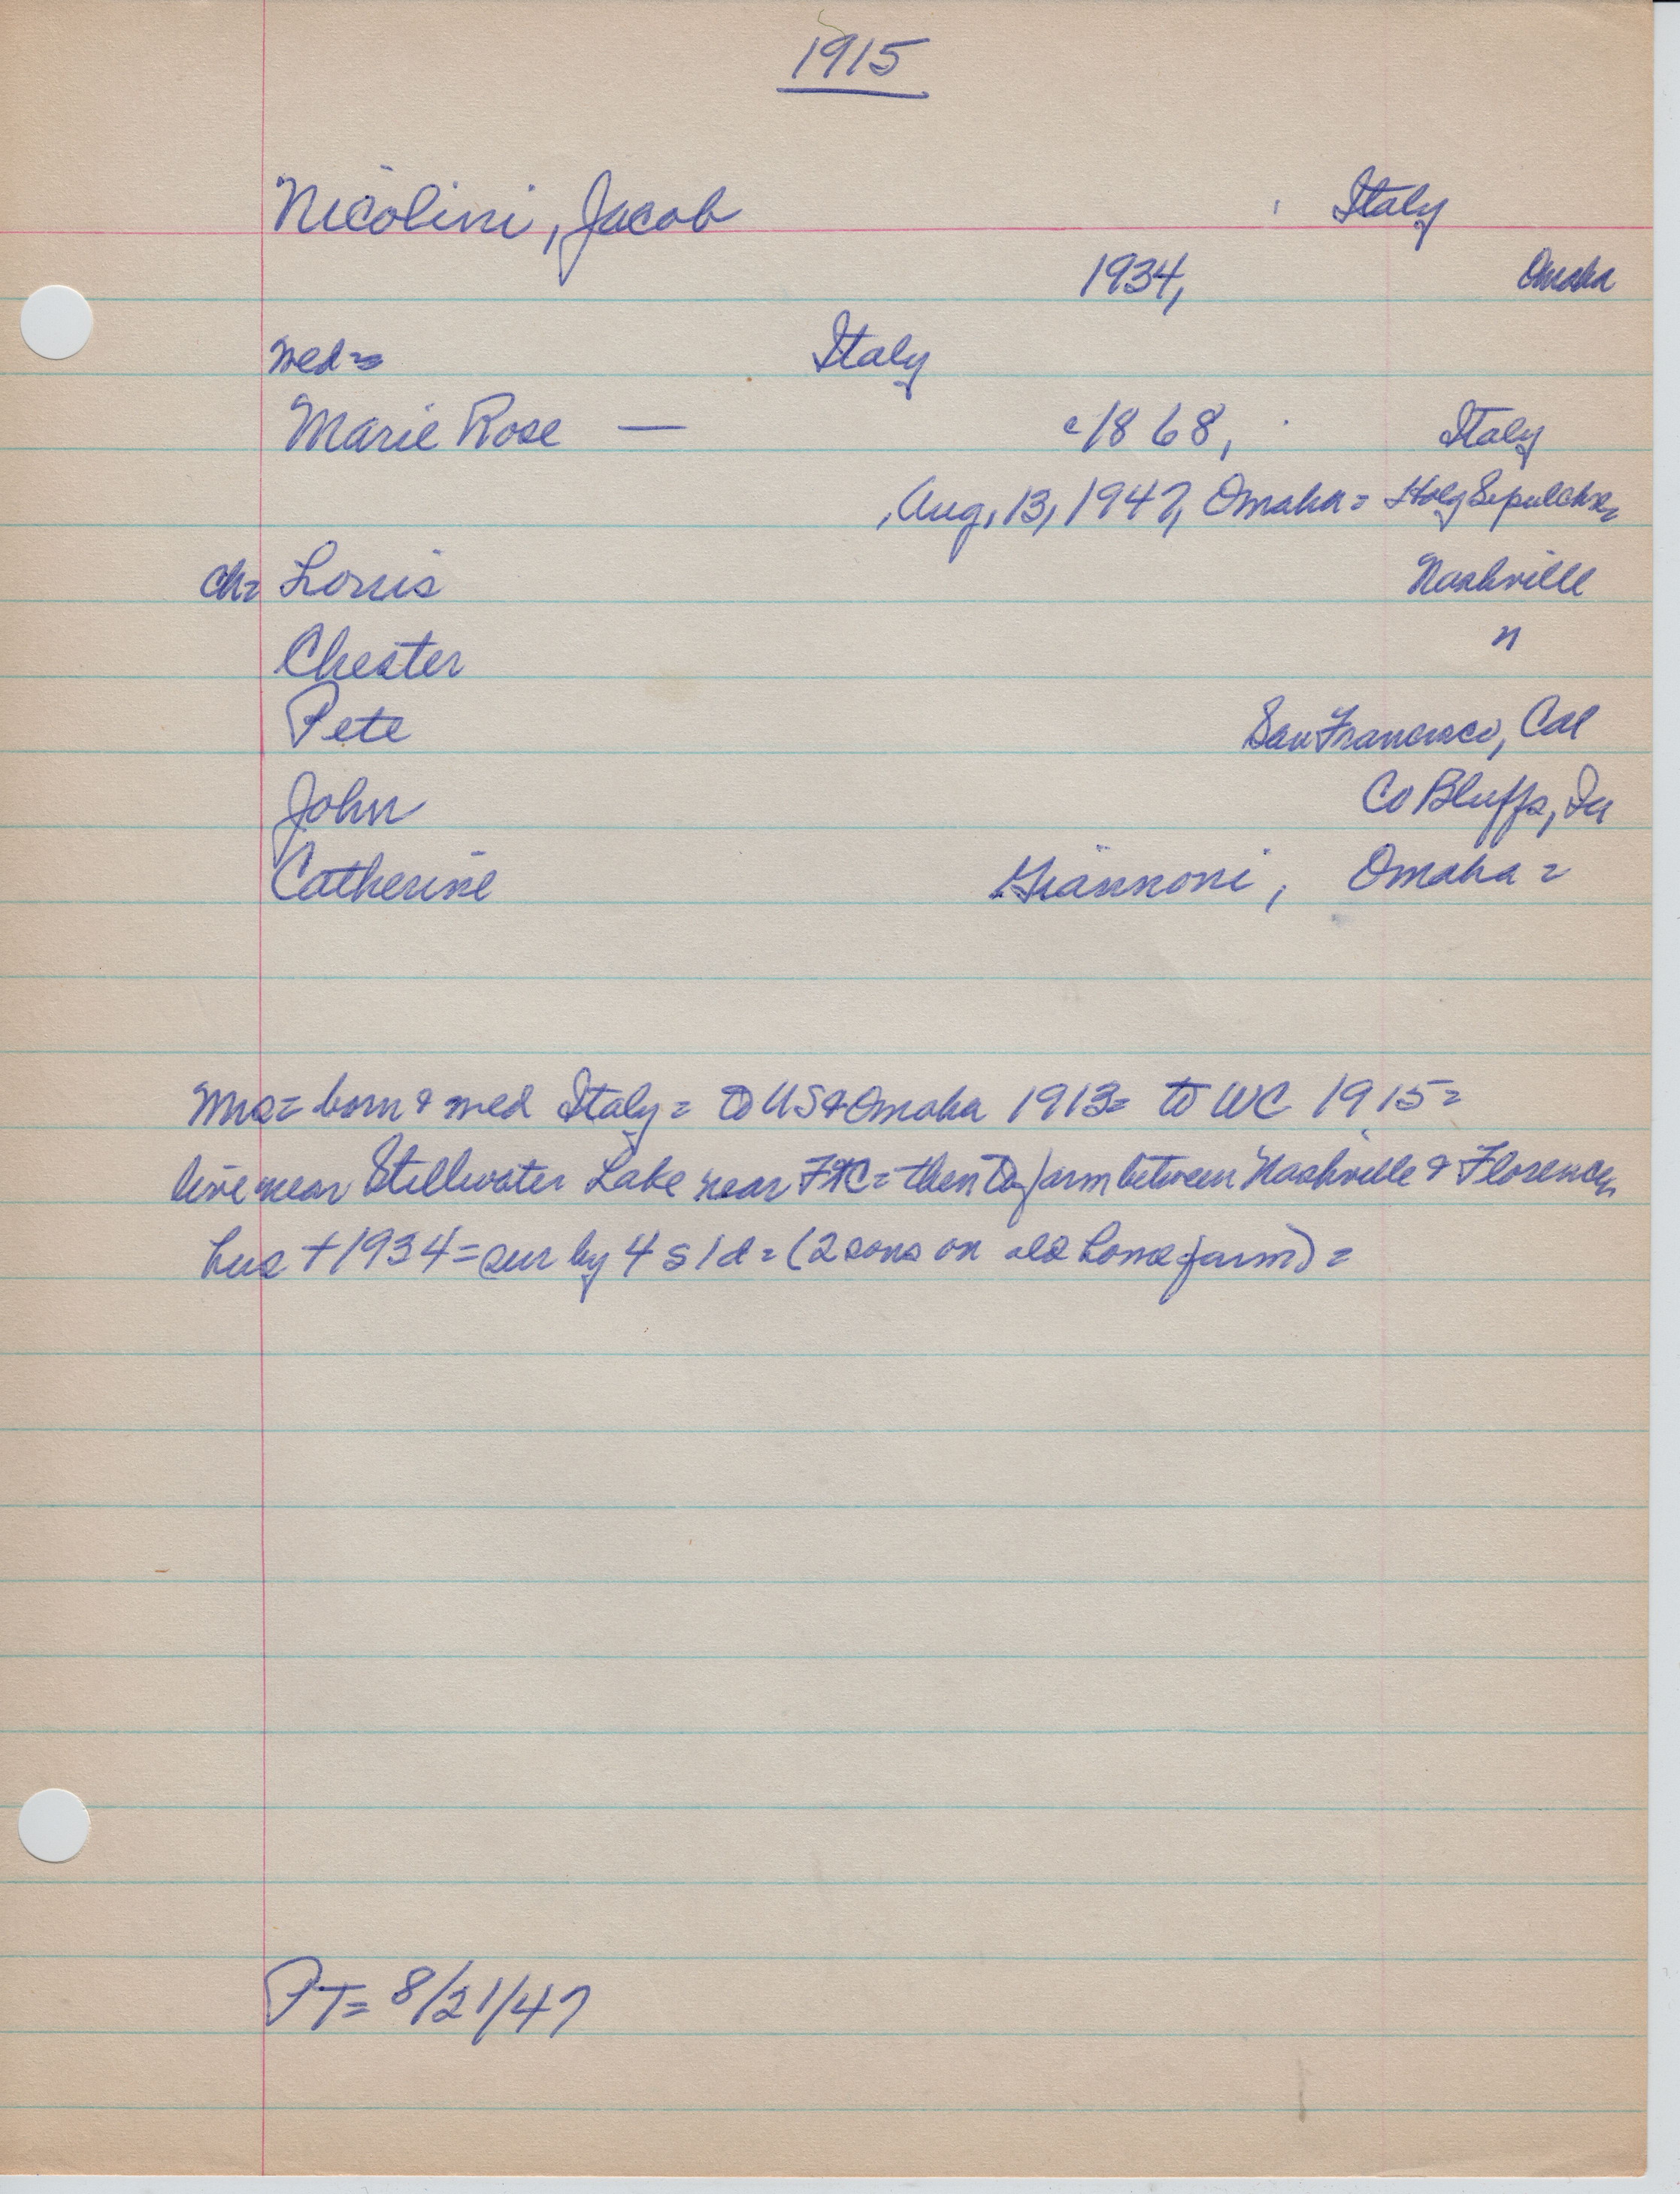 1915
Nicolini, Jacob , Italy
1934, Omaha
med= Italy
Marie Rose — c1868, Italy
, Aug, 13, 1947, Omaha= Holy Sepulchre=
ch= Louis Nashville
Chester "
Pete San Francisco, Cal
John Co Bluffs, Ia
Catherine Giannoni, Omaha=
Mrs= born & med Italy= to US & Omaha 1913= to WC 1915=
live near Stillwater Lake near FtC= then to farm between Nashville & Florence=
hus + 1934= sur by 4 s 1 d= (2 sons on old home farm)=
PT= 8/21/47